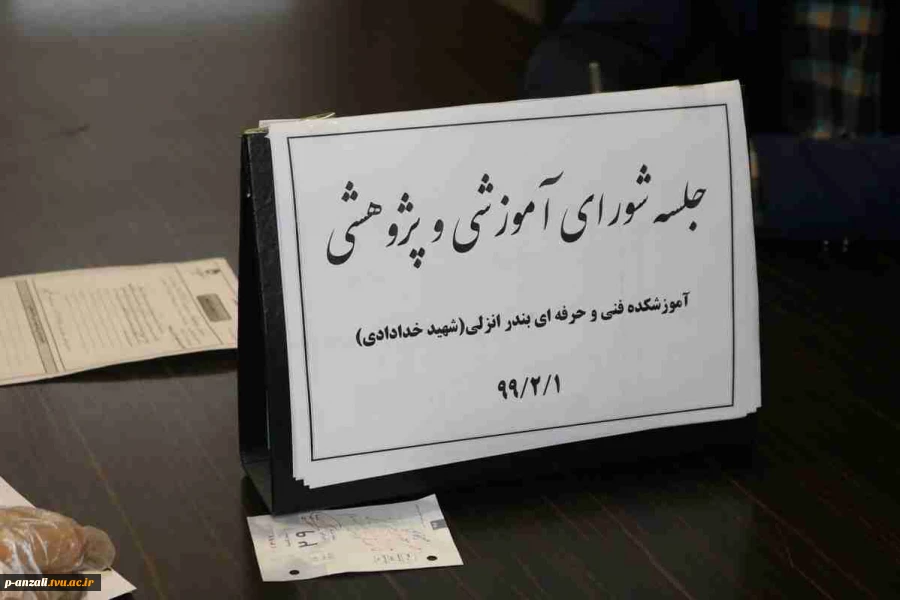 جلسه شورای آموزشی و پژوهشی
آموزشکده فنی و حرفه ای بندر انزلی(شهید خدادادی)
۹۹/۲/۱
p-anzali.tvu.ac.ir